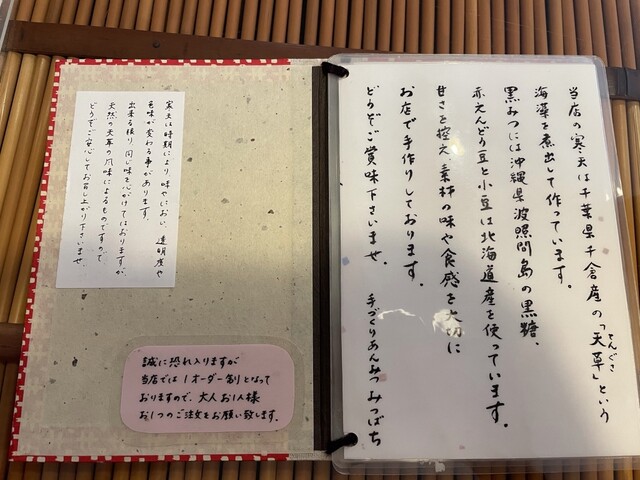 当店の寒天は千葉県千倉産の「天草」という
てんぐさ
海藻を煮出して作っています。
黒みつには沖縄県波照間島の黒糖、
赤えんどう豆と小豆は北海道産を使っています。
甘さを控え、素材の味や食感を大切に
お店で手作りしております。
どうぞご賞味下さいませ。
手づくりあんみつ みつばち
寒天は時期により、味やにおい、透明度や
色味が変わる事があります。
出来る限り、同じ味を心がけてはおりますが、
天然の天草の風味によるものですので、
どうぞご安心してお召し上がり下さいませ。
誠に恐れ入りますが
当店では1オーダー制となって
おりますので、大人お1人様
お1つのご注文をお願い致します。